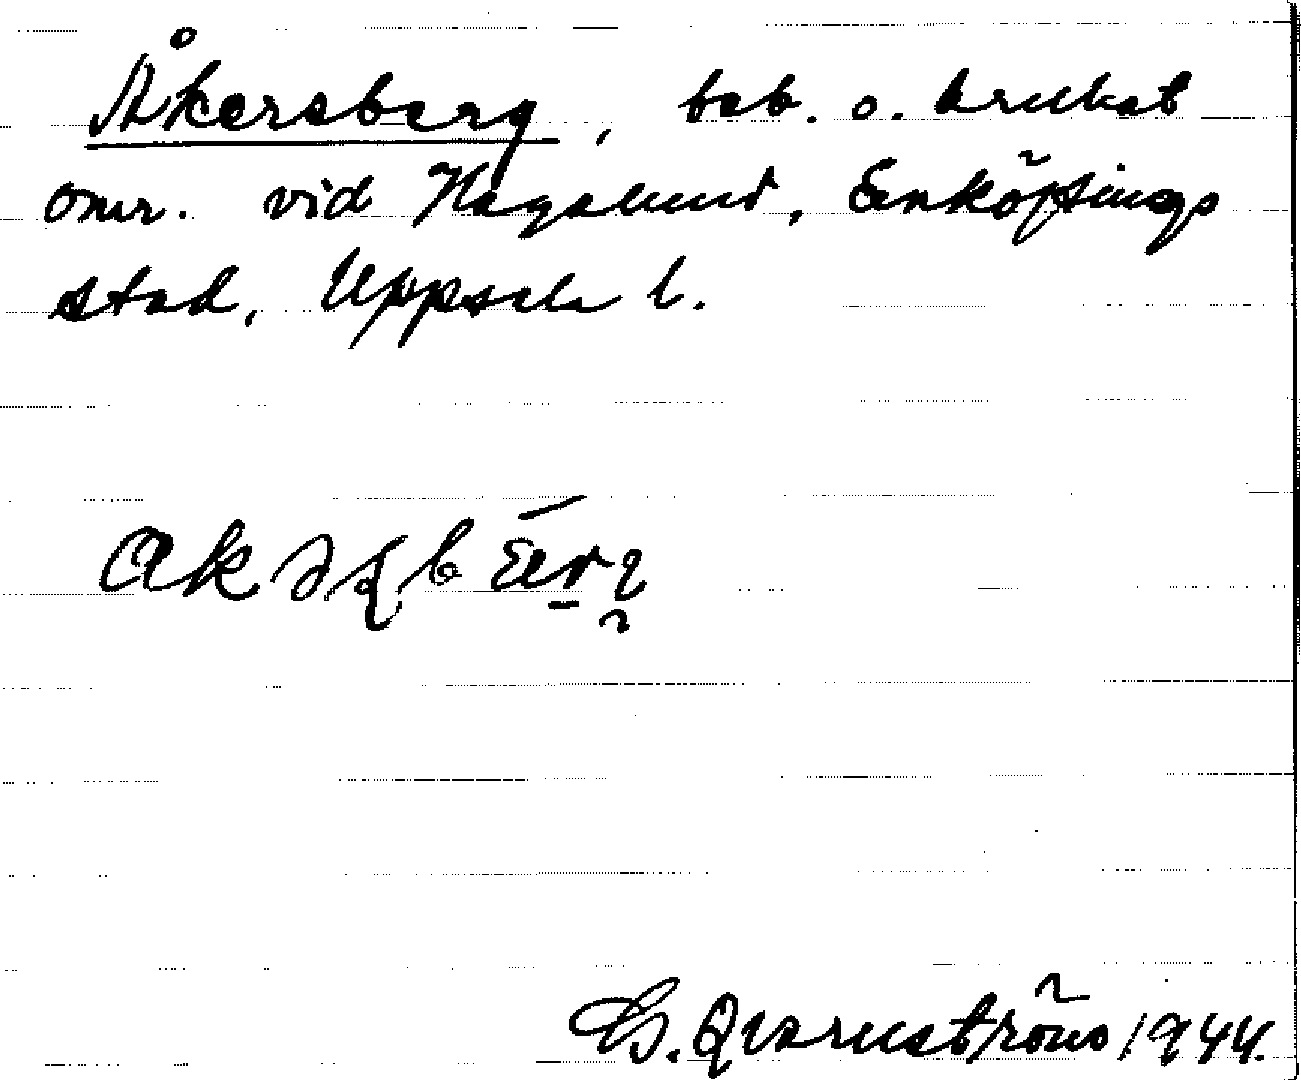 Åkersberg, beb. o. brukat
omr. vid Hagalund, Enköpings
stad, Uppsala l.
G. Qvarnström 1944.